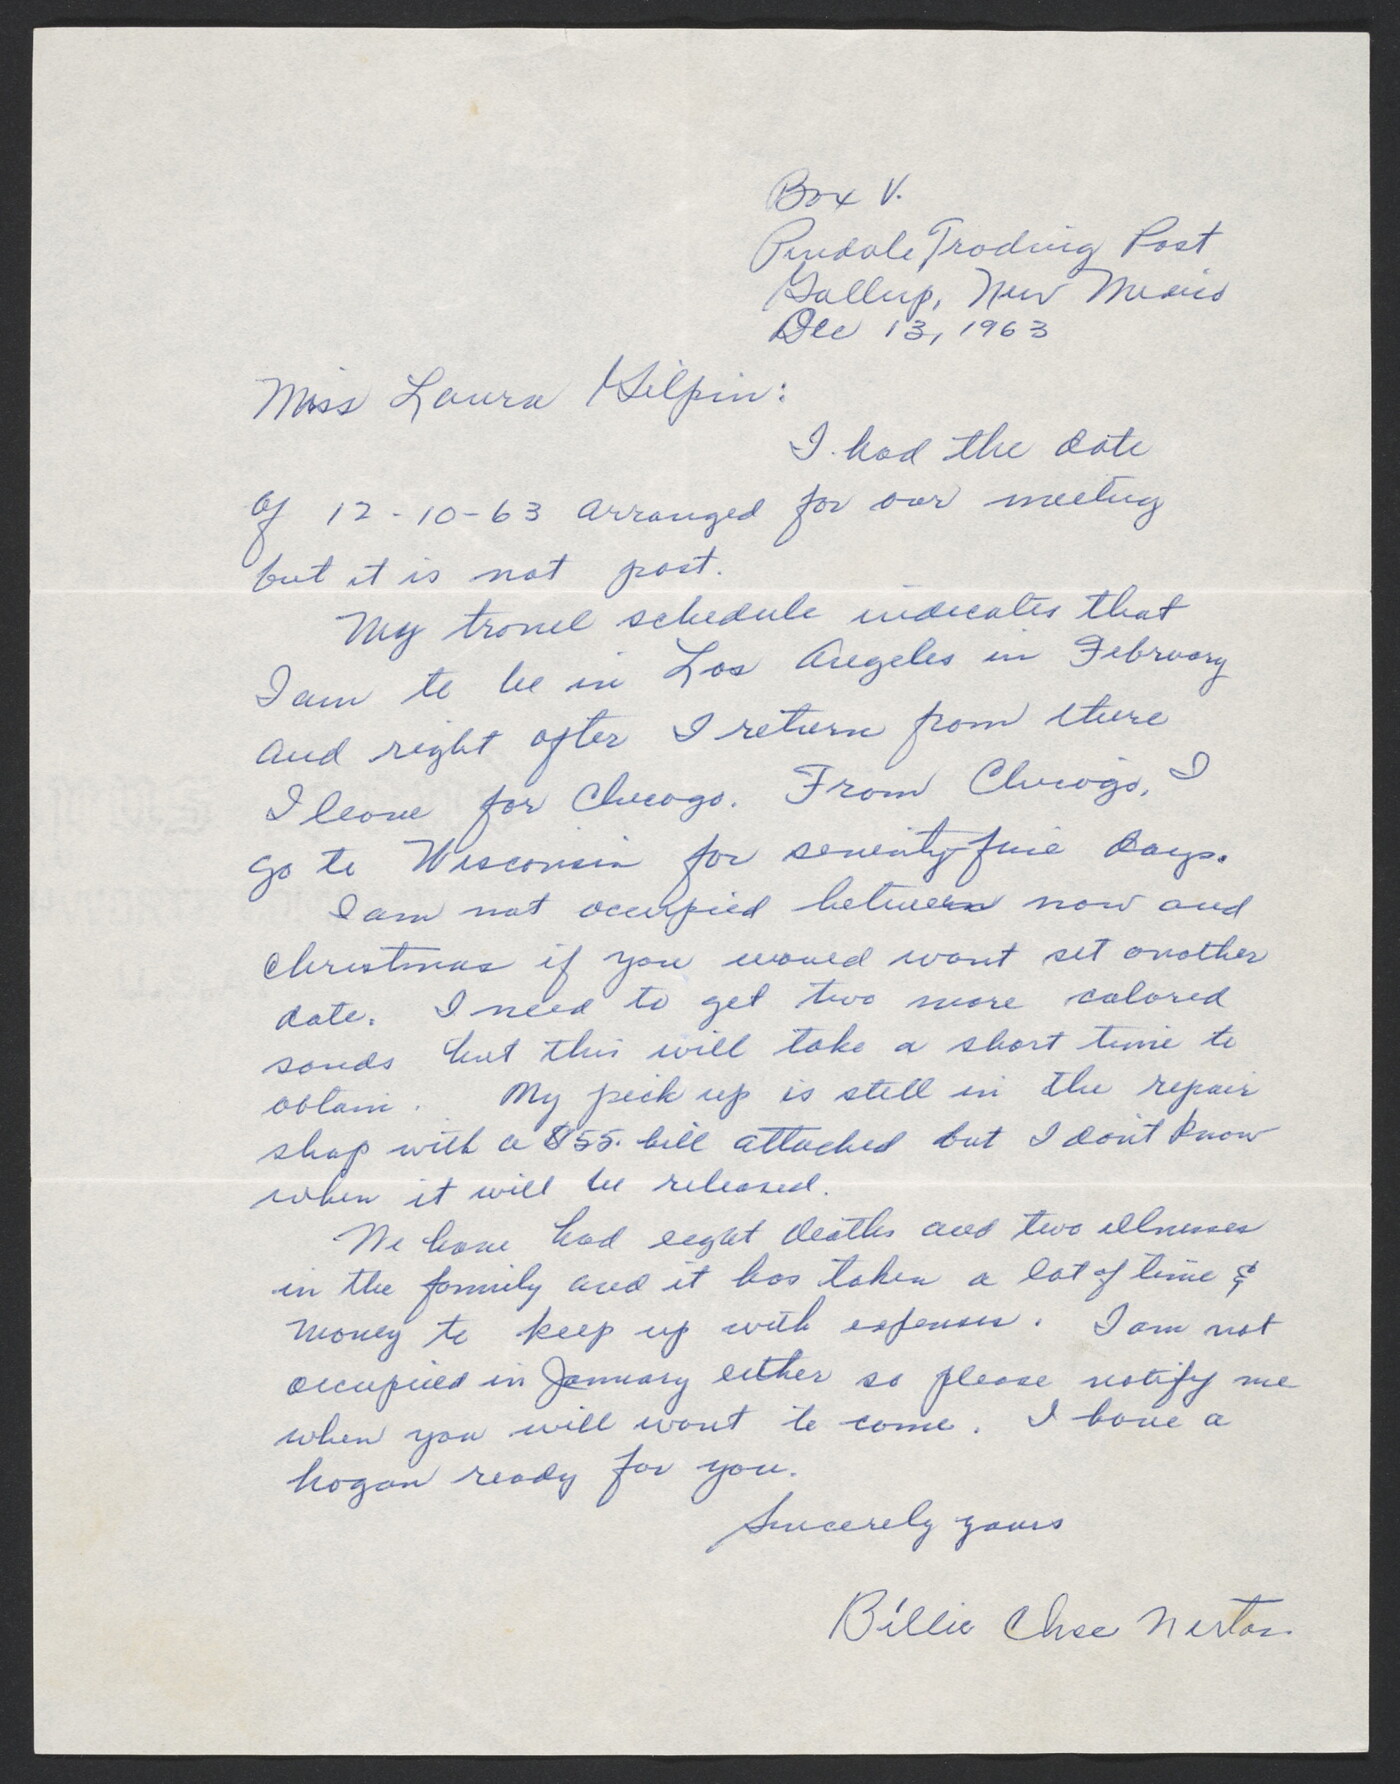 Box V.
Pinedale Trading Post
Gallup, New Mexico
Dec 13, 1963
Miss Laura Gilpin:
I had the date
of 12-10-63 arranged for our meeting
but it is not past.
My travel schedule indicates that
I am to be in Los Angeles in February
and right after I return from there
I leave for Chicago. From Chicago, I
go to Wisconsin for seventy-five days.
I am not occupied between now and
Christmas if you would want set another
date. I need to get two more colored
sands but this will take a short time to
obtain. My pick up is still in the repair
shop with a $55. bill attached but I don't know
when it will be released.
We have had eight deaths and two illnesses
in the family and it has taken a lot of time &
money to keep up with expenses. I am not
occupied in January either so please notify me
when you will want to come. I have a
hogan ready for you.
Sincerely yours
Billie Chee